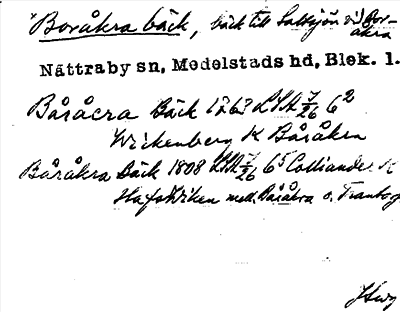 Boråkra bäck, bäck till Saltsjön vid Bor-
åkra
Nättraby sn, Medelstads hd, Blek. l.
Båråcra Bäck 1763 LSA 7/26 6²
Wickenberg K Båråkra
Båråkra Bäck 1808 LSA 7/26 6⁵ Colliander K
Hafsviken mell. Båråkra o. Trantog